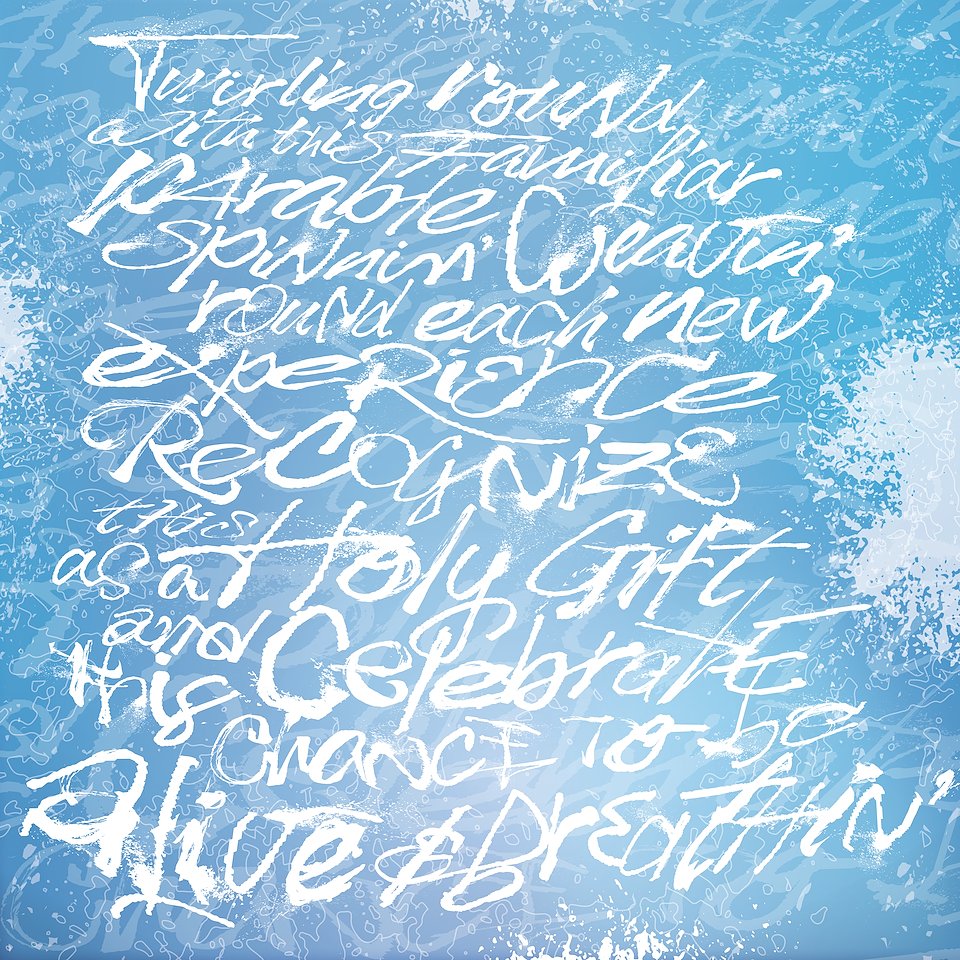 Twirling round
with this Familiar
Parable
Spinnin' Weavin'
round each new
experience
Recognize
this
as a Holy Gift
and Celebrate
this
chance to be
Alive & breathin'